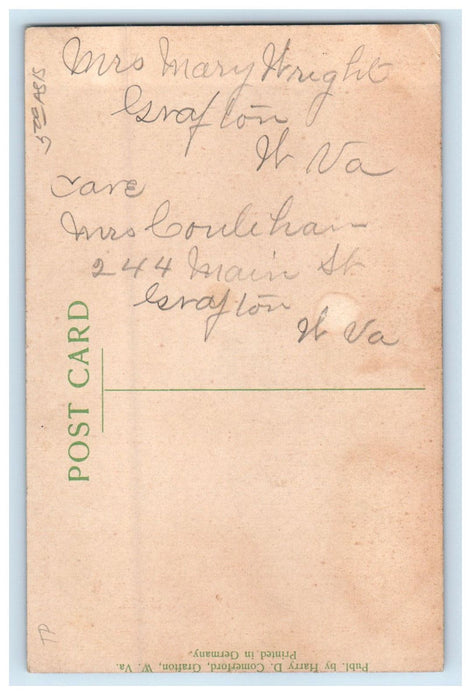 Mrs Mary Wright
Grafton
W Va
Care
Mrs Coulehan
244 Main St
Grafton
W Va
POST CARD
TP
Publ. by Harry D. Comerford, Grafton, W. Va.
Printed in Germany.